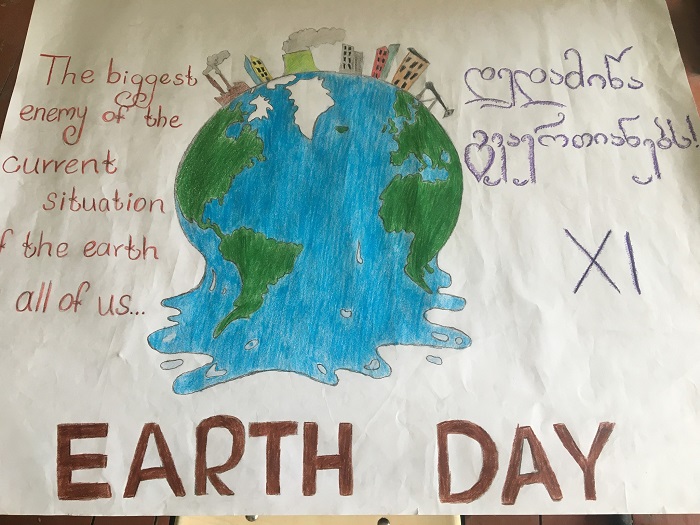 The biggest
enemy of the
current
situation
f the earth
all of us...
დედამიწა
გვაერთიანებს!
XI
EARTH DAY